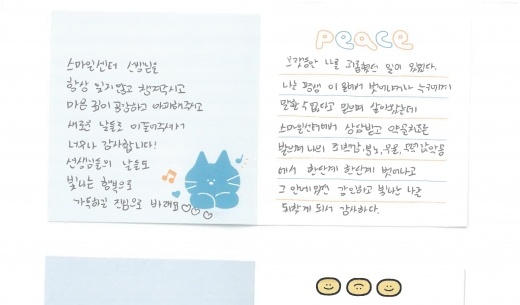 스마일센터 선생님들
항상 잊지않고 챙겨주시고
마음 깊이 공감하고 이해해주고
새로운 날들로 이끌어주셔서
너무나 감사합니다!
선생님들의 날들도
빛나는 행복으로
가득하길 진심으로 바래요♡♡♡
peace
오랫동안 나를 괴롭혔던 일이 있었다.
나는 평생 이 일에서 벗어나거나 누구에게
말할 수 없다고 믿으며 살아왔는데
스마일센터에서 상담받고 약물치료를
받으며 나의 죄책감, 분노, 우울,
에서 한단계 한단계 벗어나고
그 안에 강인하고 빛나는 나를
되찾게 되서 감사하다.